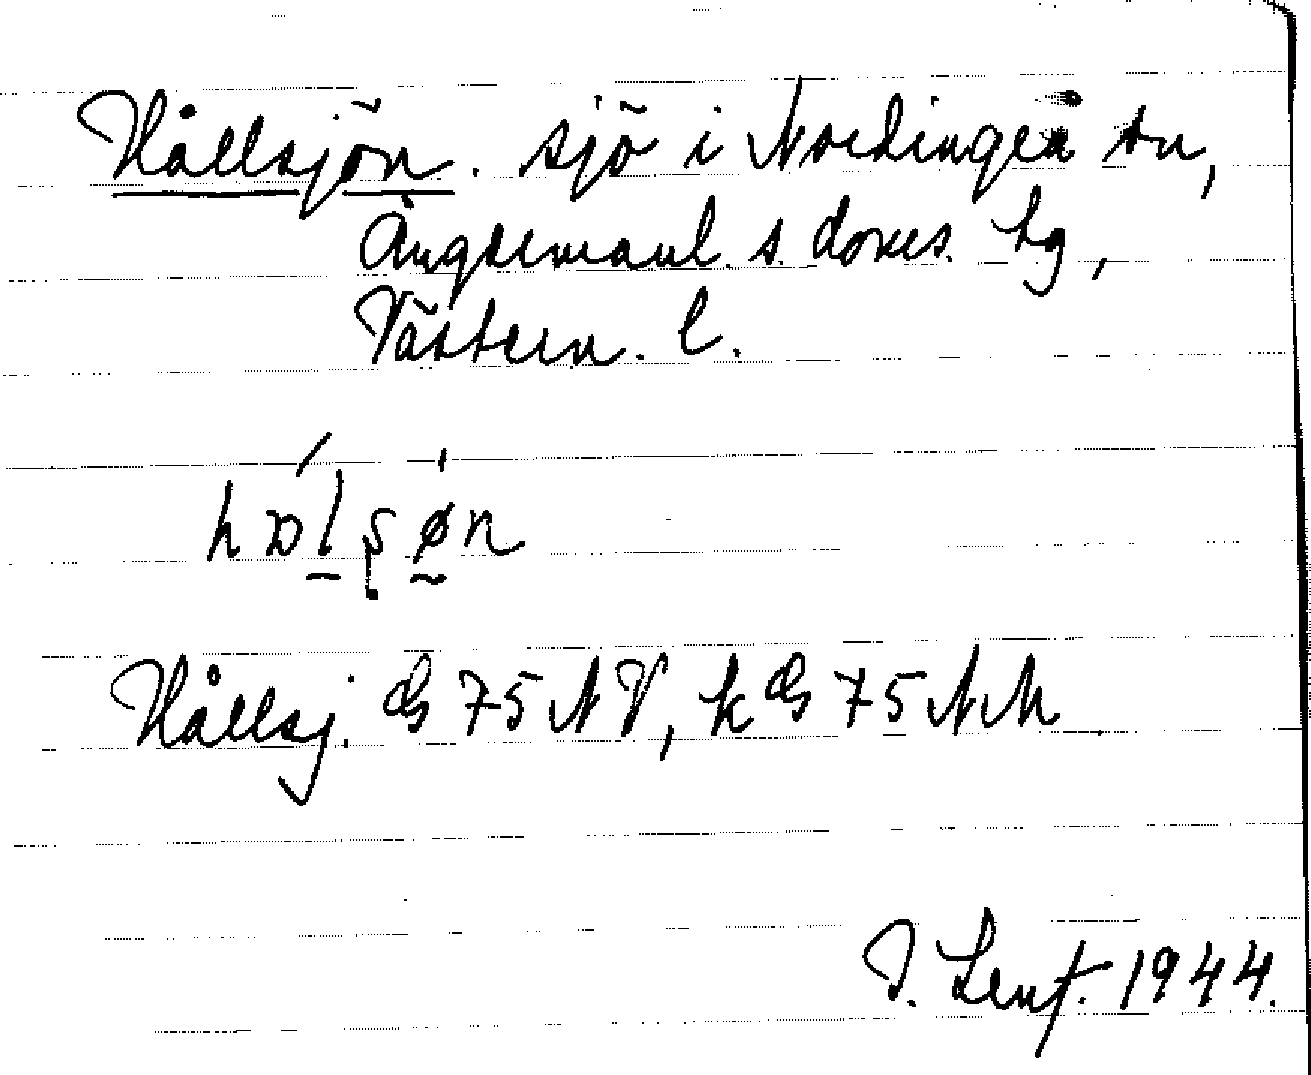 Hållsjön. sjö i Nordingrå sn,
Ångermanl. s. doms. hg,
Västern. l.
Hållsj. GS 75 NV, k GS 75 NM
J. Lenf. 1944.